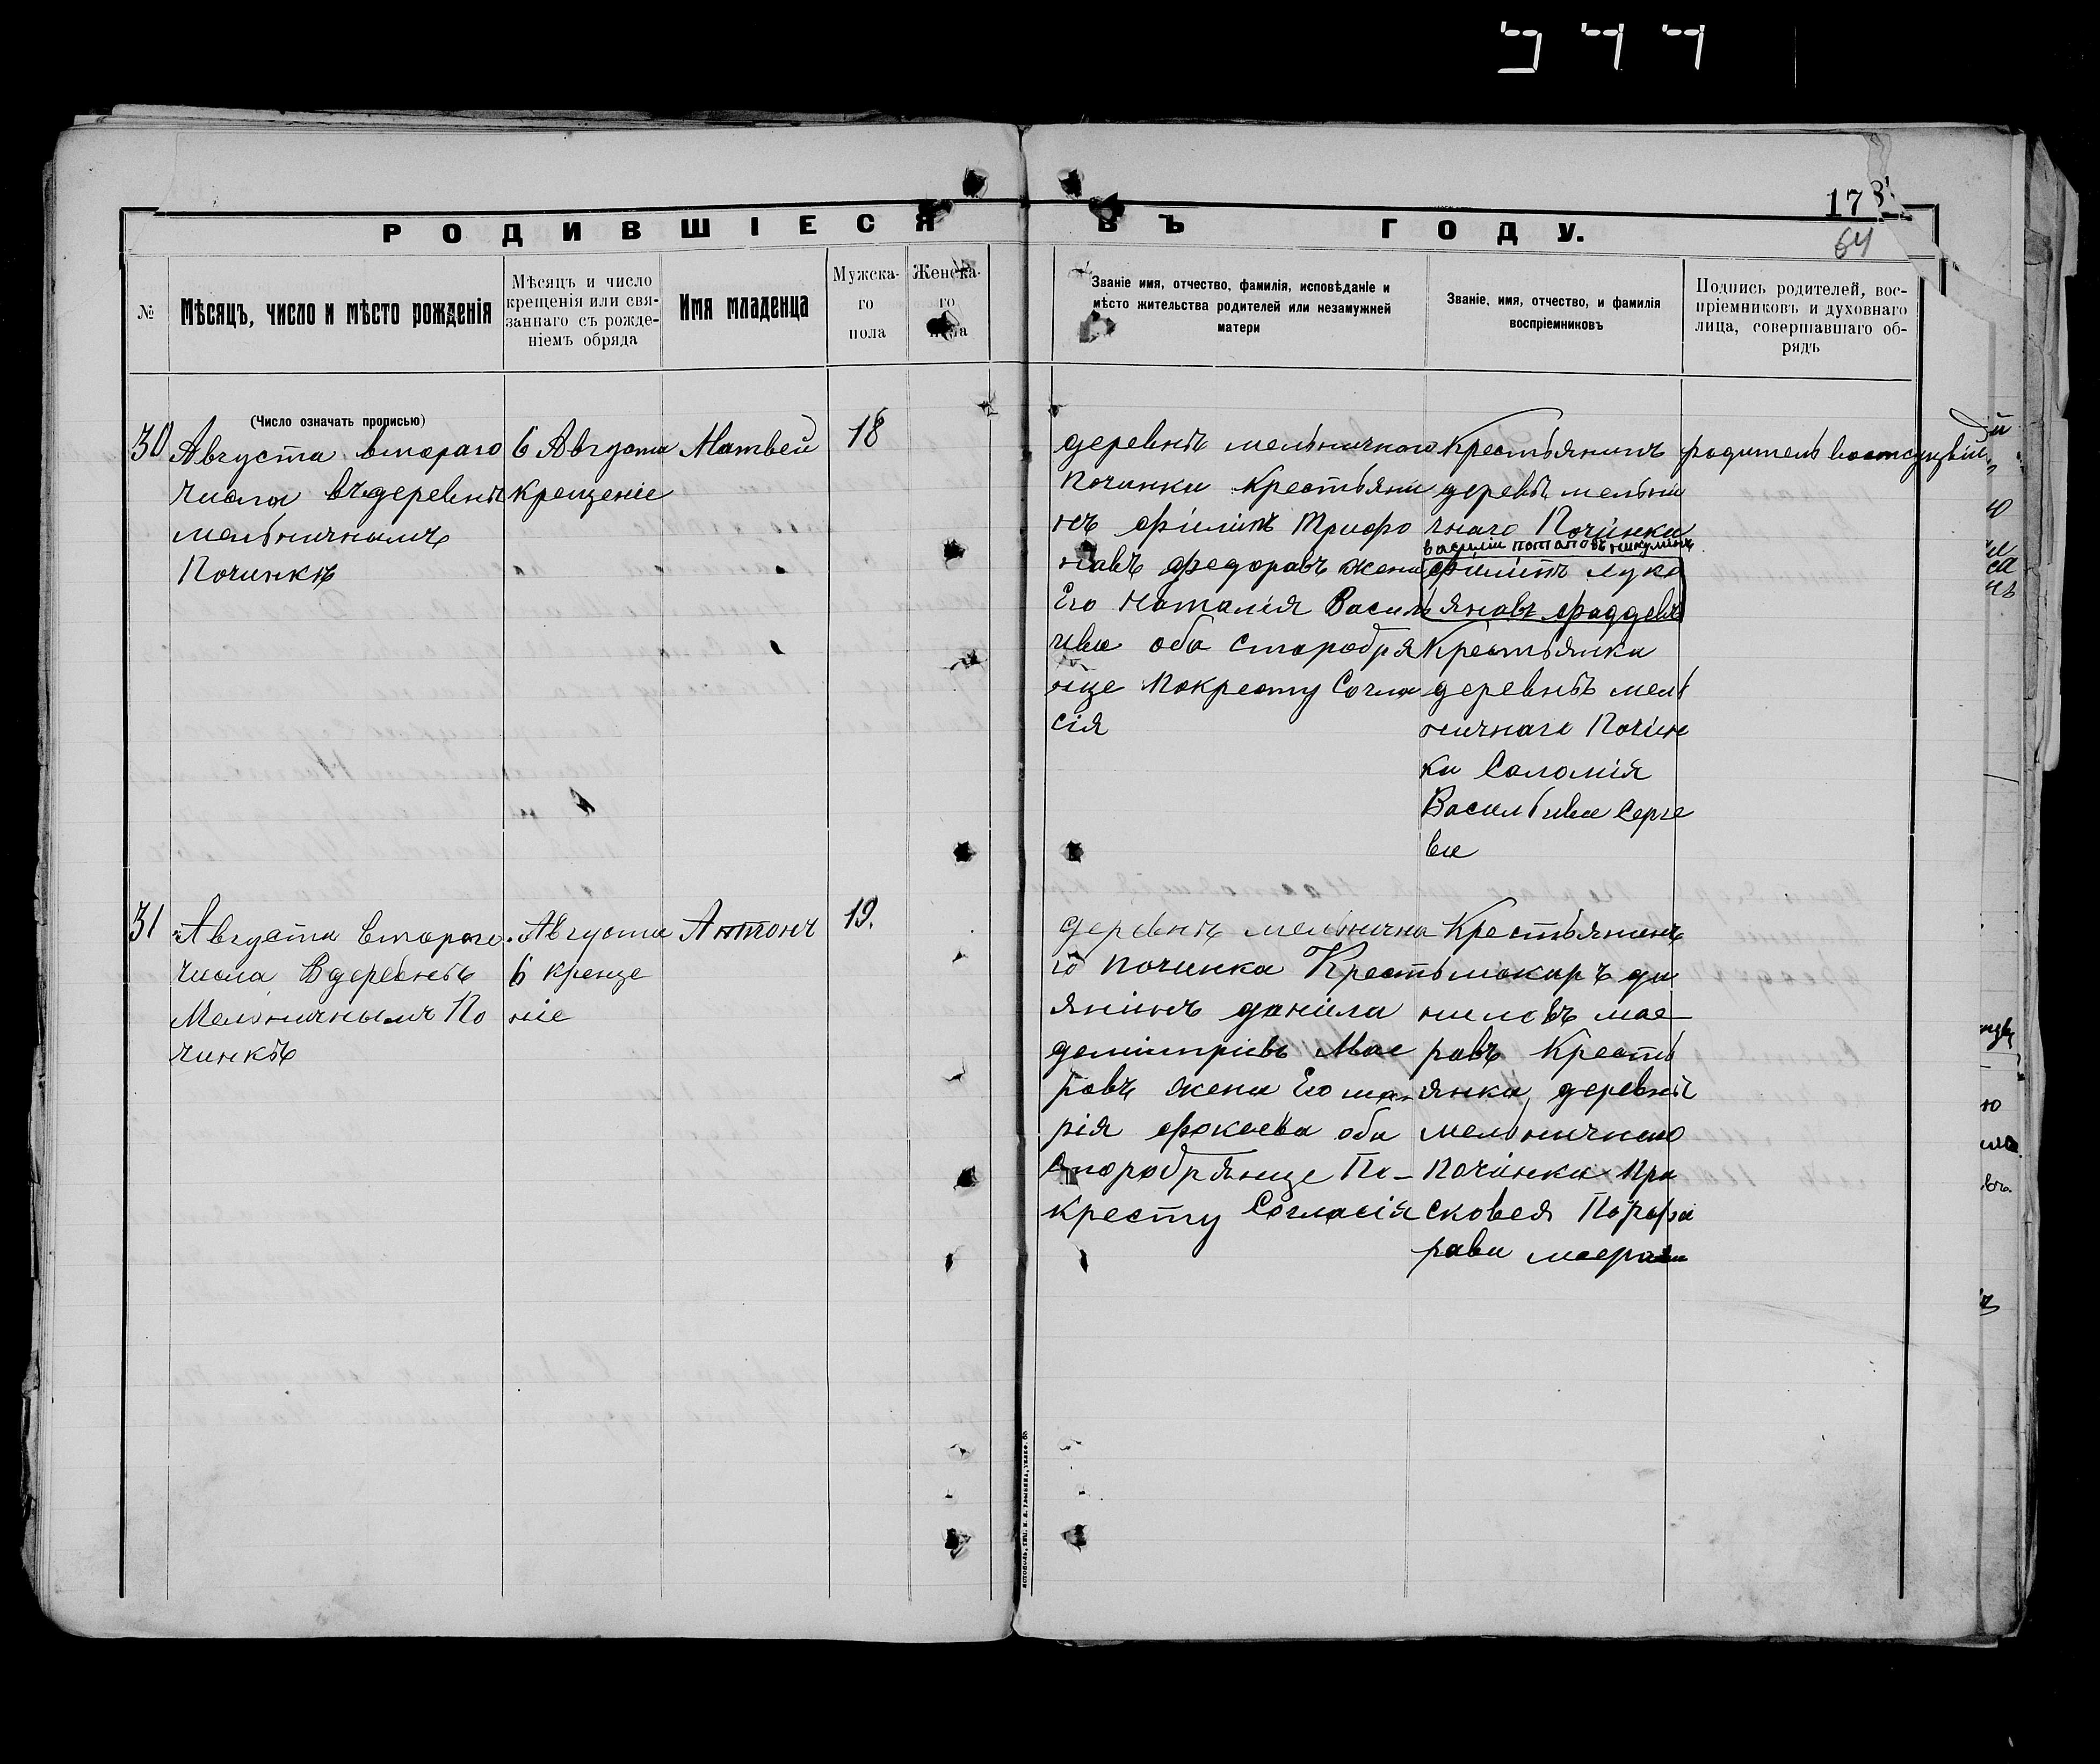 173
64
РОДИВШІЕСЯ ВЪ ГОДУ.
№
Мѣсяцъ, число и мѣсто рожденія
Мѣсяцъ и число
крещенія или свя-
заннаго съ рожде-
ніемъ обряда
Имя младенца
Мужска-
го
пола
Женска-
го
пола
Званіе имя, отчество, фамилія, исповѣданіе и
мѣсто жительства родителей или незамужней
матери
Званіе, имя, отчество, и фамилія
воспріемниковъ
Подпись родителей, вос-
пріемниковъ и духовнаго
лица, совершавшаго об-
рядъ
(Число означать прописью)
30
Августа втораго
числа въ деревнѣ
мельничнымъ
Починкѣ
6 Августа
крещеніе
Матвей
18
деревнѣ мельничного
Починки Крестьяни
нъ филипъ Трифо
навъ федоравъ жена
Его наталія Василь
ивна оба старобря
нце покресту Согла
сія
Крестьянинъ
деревнѣ мельни
чнаго Починка
василіи потаповъ никулинъ
филипъ лука
янавъ фаддевъ
Крестьянка
деревнѣ мель
ничнаго Почин
ка Саломія
Васильивна Серге
ва
родитель
31
Августа втораго
числа въ деревнѣ
Мельничнымъ По
чинкѣ
Августа
6 креще
ніе
Антонъ
19.
деревнѣ мельнична
го починка Кресть
янинъ данила
демитріевъ Мае
ровъ жена Его ма-
рія фокаева оба
старобрянце По-
кресту Согласія
Крестьянинъ
макаръ да
ниловъ мае-
равъ Кресть
янка, деревнѣ
мельничнаго
Починка Пра
сковея
рава маерава